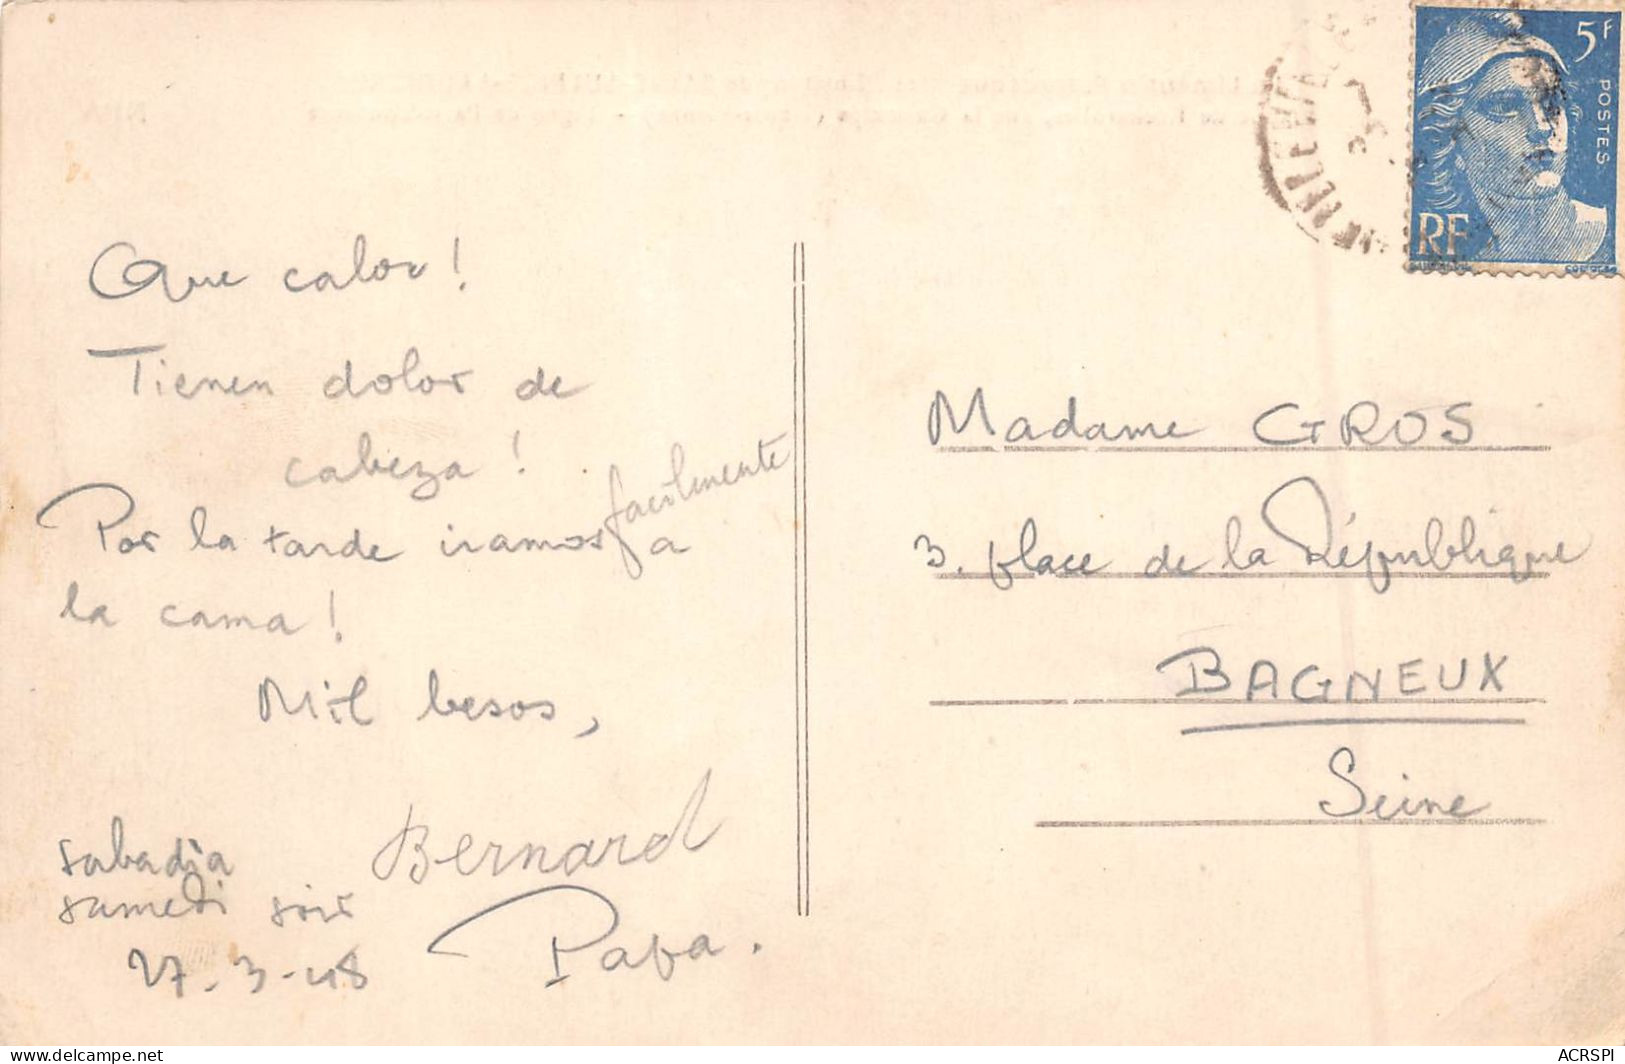 5F
POSTES
RF
Que calor!
Tienen dolor de
cabeza!
Por la tarde iramos facilmente a
la cama!
Mil besos,
Bernard
Papa.
sabadia
samedi soir
27-3-48
Madame GROS
3. place de la République
BAGNEUX
Seine
ACRSPI